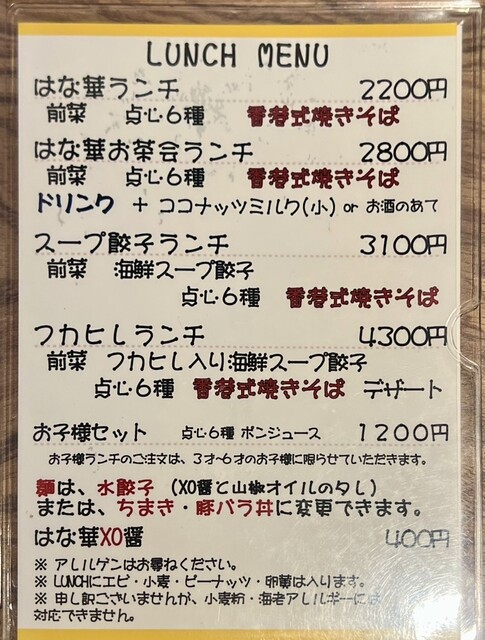 LUNCH MENU
はな華ランチ 2200円
前菜 点心6種 香港式焼きそば
はな華お茶会ランチ 2800円
前菜 点心6種 香港式焼きそば
ドリンク + ココナッツミルク(小) or お酒のあて
スープ餃子ランチ 3100円
前菜 海鮮スープ餃子
点心6種 香港式焼きそば
フカヒレランチ 4300円
前菜 フカヒレ入り海鮮スープ餃子
点心6種 香港式焼きそば デザート
お子様セット 点心6種 ポンジュース 1200円
お子様ランチのご注文は、3才~6才のお子様に限らせていただきます。
麺は、水餃子 (XO醤と山椒オイルのタレ)
または、ちまき・豚バラ丼に変更できます。
はな華XO醤 400円
※ アレルゲンはお尋ねください。
※ LUNCHにエビ・小麦・ピーナッツ・卵黄は入ります。
※ 申し訳ございませんが、小麦粉・海老アレルギーには
対応できません。